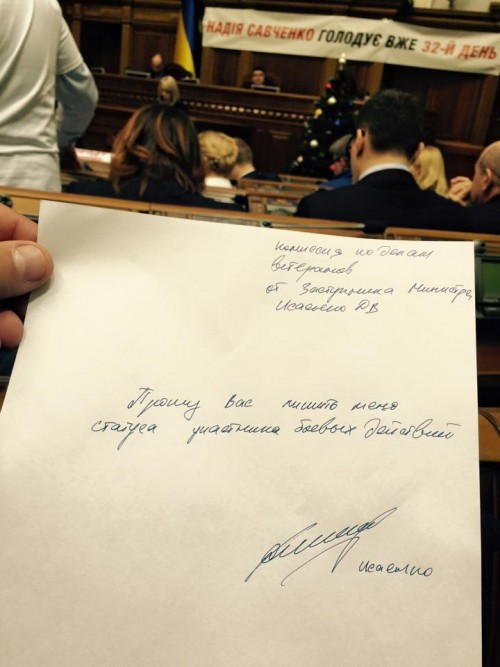 НАДІЯ САВЧЕНКО ГОЛОДУЄ ВЖЕ 32-Й ДЕНЬ
комиссия по делам
ветеранов
от Заступника Министра
Исаенко ДВ
Прошу Вас лишить меня
статуса участника боевых действий
Исаенко